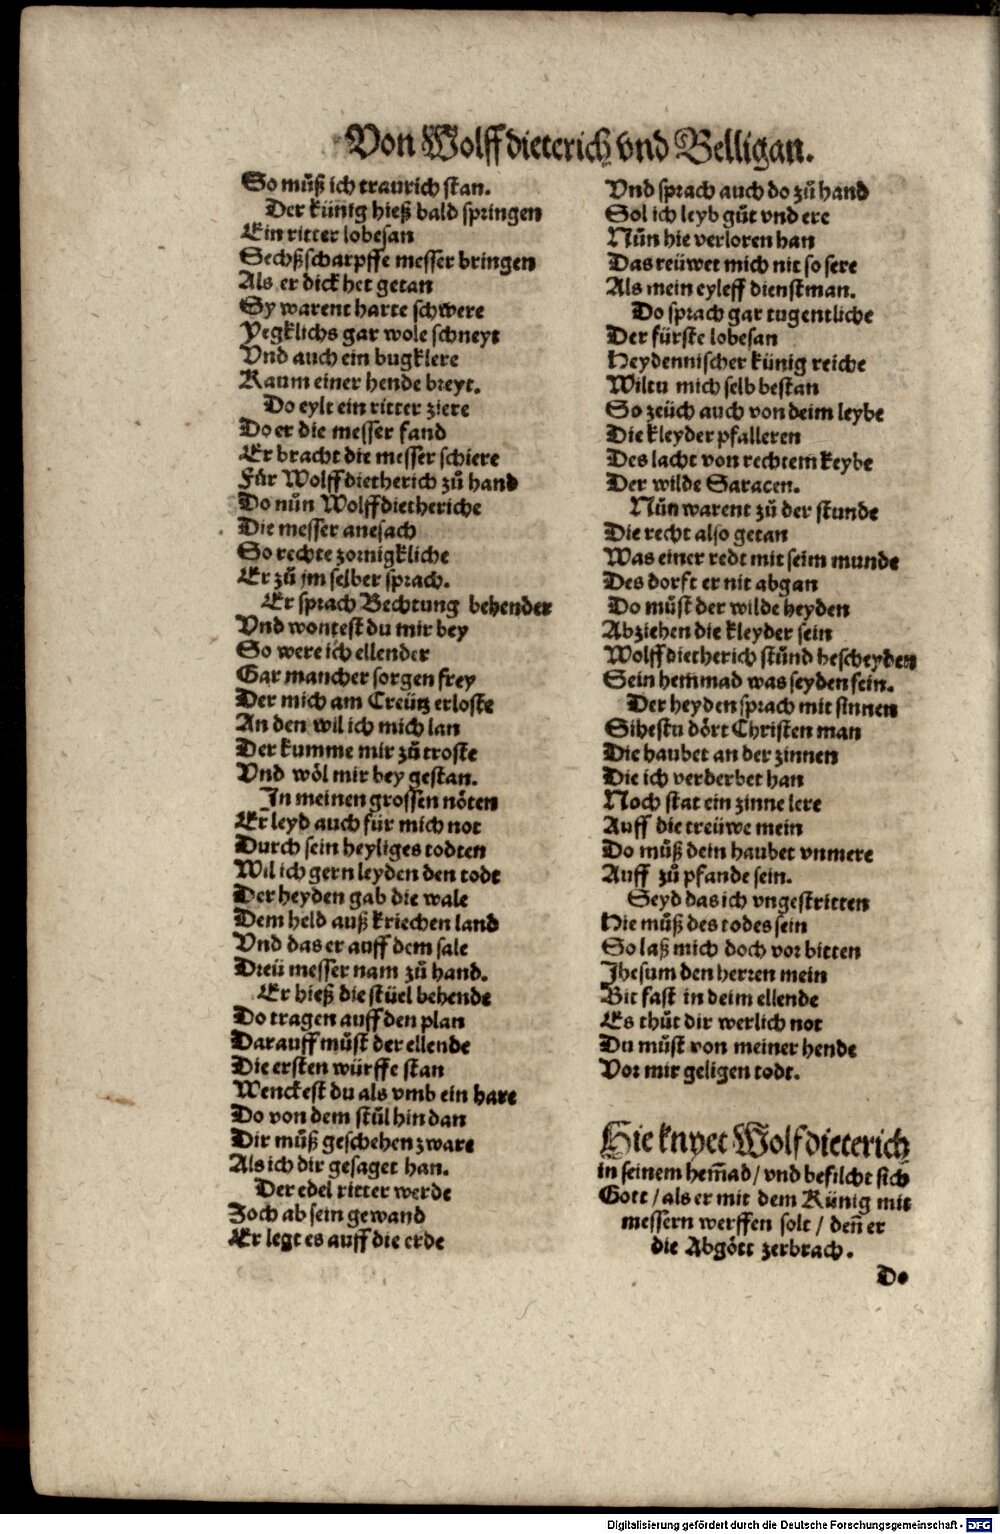 Von Wolffdieterich vnd Belligan.
So muͦß ich traurich stan.
Der künig hieß bald springen
Ein ritter lobesan
Sechß scharpffe messer bringen
Als er dick het getan
Sy warent harte schwere
Yegklichs gar wole schneyt
Vnd auch ein bugklere
Kaum einer hende breyt.
Do eylt ein ritter ziere
Do er die messer fand
Er bracht die messer schiere
Für Wolffdietherich zuͦ hand
Do nuͦn Wolffdietheriche
Die messer anesach
So rechte zornigkliche
Er zuͦ jm selber sprach.
Er sprach Bechtung behender
Vnd wontest du mir bey
So were ich ellender
Gar mancher sorgen frey
Der mich am Creütz erloste
An den wil ich mich lan
Der kumme mir zuͦ troste
Vnd wöl mir bey gestan.
In meinen grossen nöten
Er leyd auch für mich not
Durch sein heyliges todten
Wil ich gern leyden den todt
Der heyden gab die wale
Dem held auß kriechen land
Vnd das er auff dem sale
Dreü messer nam zuͦ hand.
Er hieß die stüel behende
Do tragen auff den plan
Darauff muͦst der ellende
Die ersten würffe stan
Wenckest du als vmb ein hare
Do von dem stuͦl hin dan
Dir muͦß geschehen zware
Als ich dir gesaget han.
Der edel ritter werde
Zoch ab sein gewand
Er legt es auff die erde
Vnd sprach auch do zuͦ hand
Sol ich leyb guͦt vnd ere
Nuͦn hie verloren han
Das reüwet mich nit so sere
Als mein eyleff dienstman.
Do sprach gar tugentliche
Der fürste lobesan
Heydennischer künig reiche
Wiltu mich selb bestan
So zeüch auch von deim leybe
Die kleyder pfalleren
Des lacht von rechtem keybe
Der wilde Saracen.
Nuͦn warent zuͦ der stunde
Die recht also getan
Was einer redt mit seim munde
Des dorft er nit abgan
Do muͦst der wilde heyden
Abziehen die kleyder sein
Wolffdietherich stuͦnd bescheyden
Sein hemmad was seyden fein.
Der heyden sprach mit sinnen
Sihestu dört Christen man
Die haubet an der zinnen
Die ich verderbet han
Noch stat ein zinne lere
Auff die treüwe mein
Do muͦß dein haubet vnmere
Auff zuͦ pfande sein.
Seyd das ich vngestritten
Hie muͦß des todes sein
So laß mich doch vor bitten
Jhesum den herren mein
Bit fast in deim ellende
Es thuͦt dir werlich not
Du muͦst von meiner hende
Vor mir geligen todt.
Hie knyet Wolfdieterich
in seinem hem̄ad / vnd befilcht sich
Gott / als er mit dem Künig mit
messern werffen solt / den̄ er
die Abgött zerbrach.
Do
Digitalisierung gefördert durch die Deutsche Forschungsgemeinschaft - DFG